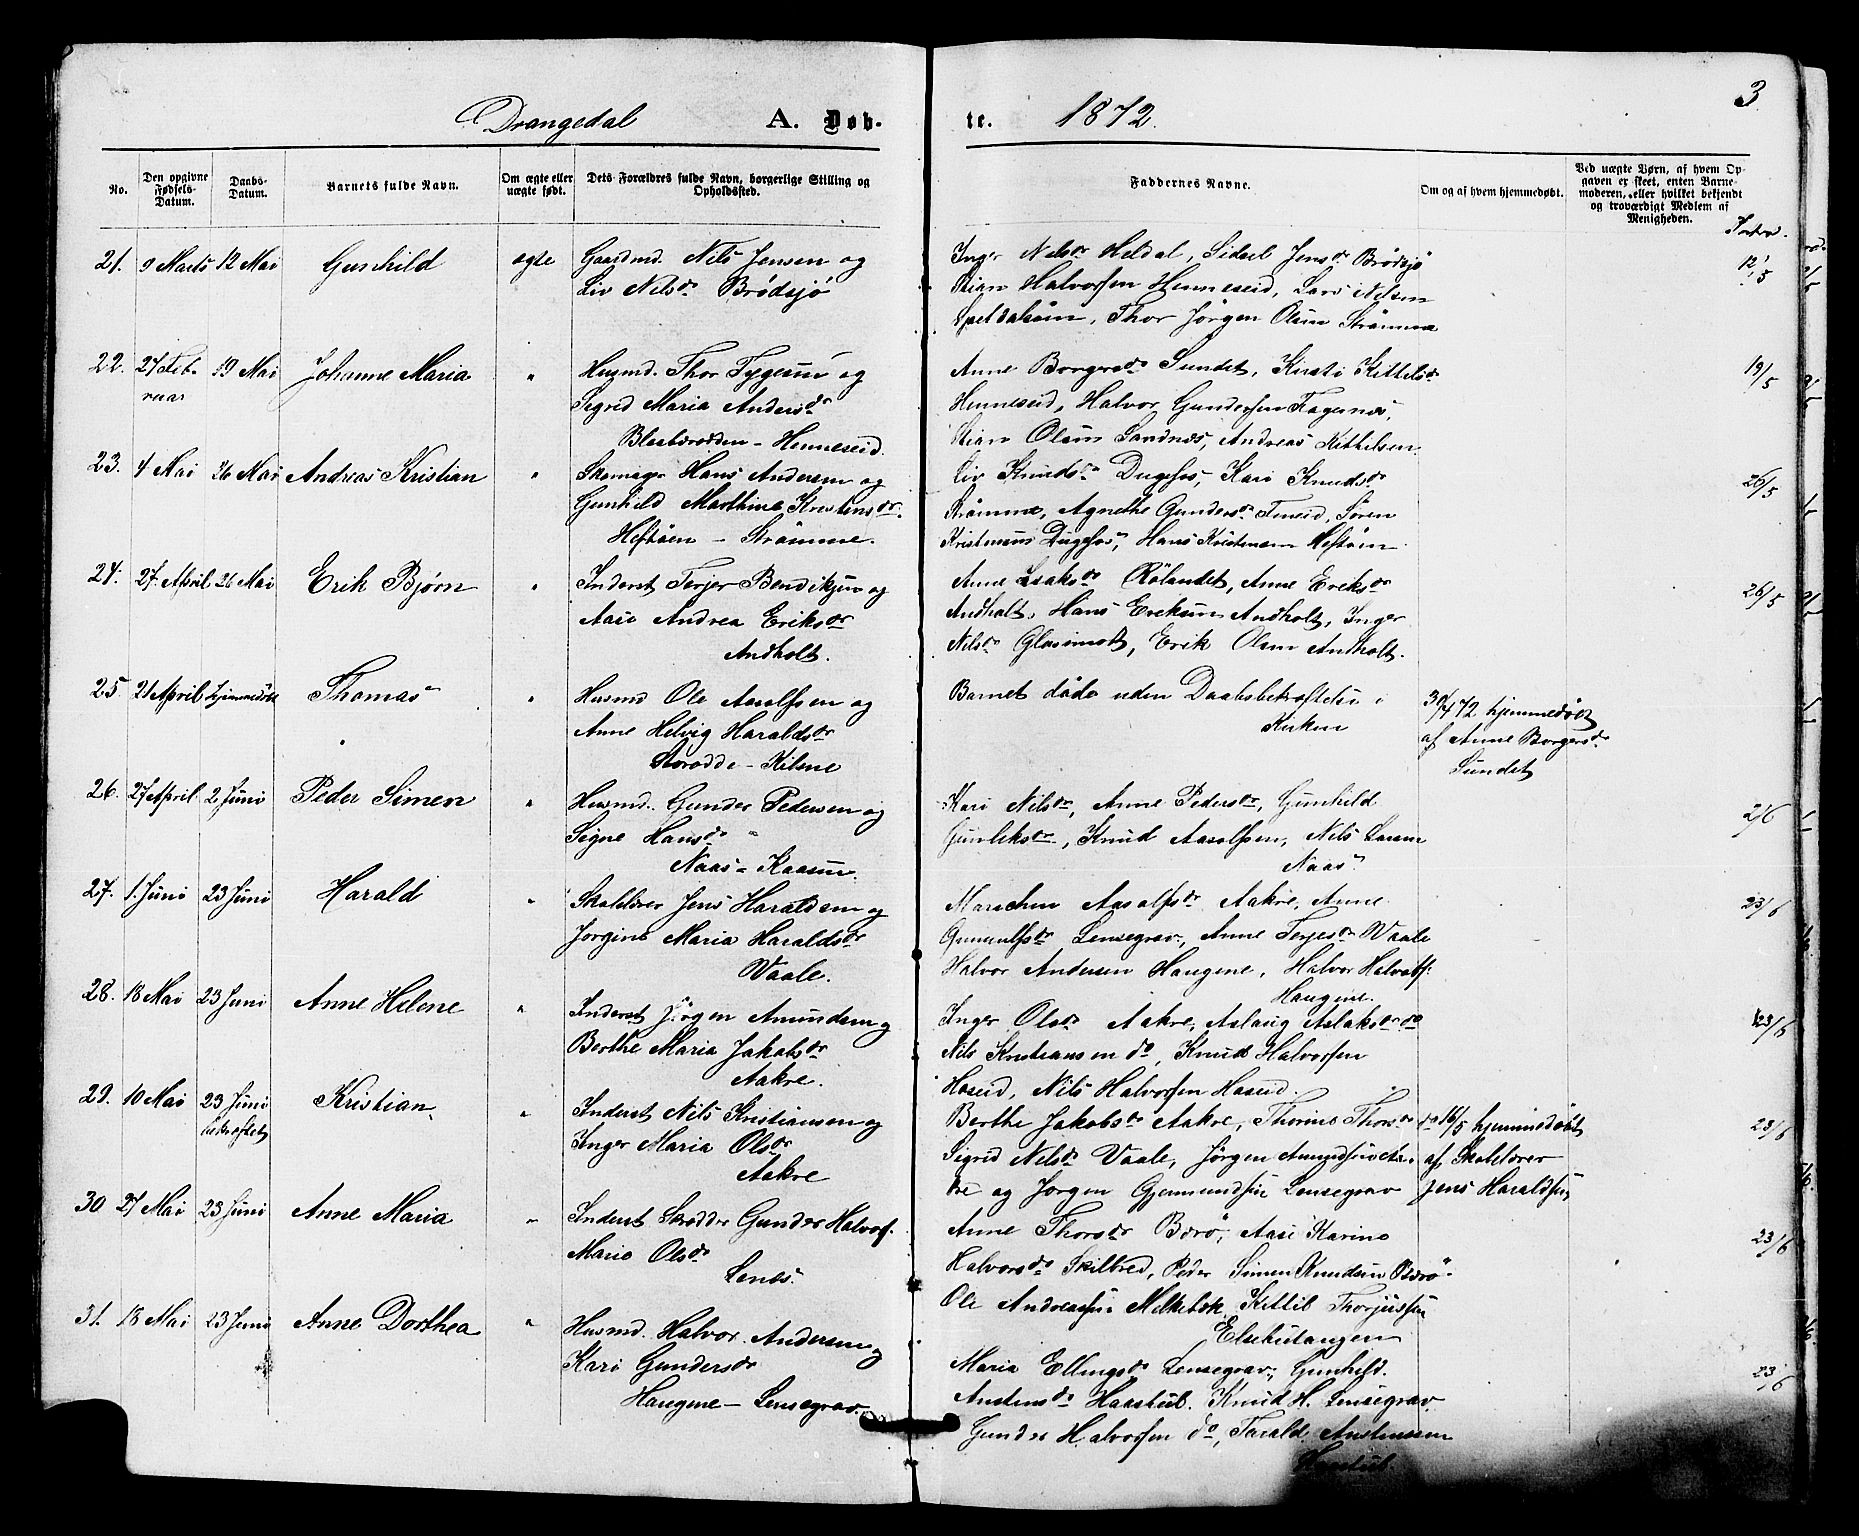 3
Drangedal A. Døb-
te. 1872.
No.
Den opgivne Fødsels-Datum.
Daabs-Datum.
Barnets fulde Navn.
Om ægte eller uægte født.
Dets Forældres fulde Navn, borgerlige Stilling og Opholdssted.
Faddernes Navne.
Om og af hvem hjemmedøbt.
Ved uægte Børn, af hvem Opgaven er skeet, enten Barnemoderen, eller hvilket bekjendt og troværdigt Medlem af Menigheden.
21. 9 Marts 12 Mai Gunhild ægte Gaardmd. Nils Jensen og
Liv Nilsdr Brödsjö
Inger Nilsdr Heldal, Sidsel Jensdr Brödsjö
Stian Halvorsen Henneseid, Lars Nilsen
Thor Jörgen Olsen Strömme
12/5
22. 27 Feb- ruar 19 Mai Johanne Maria " Husmd. Thor Tygesen og
Sigrid Maria Andersdr
Blaabærodden - Henneseid.
Anne Borgersdr Sundet, Kirsti Kittilsdr
Henneseid, Halvor Gundersen Fagernæs,
Stian Olsen Sandnæs, Andreas Kittilsen
19/5
23. 4 Mai 26 Mai Andreas Kristian " Skomager Hans Andersen og
Gunhild Marthine Kristensdr.
Heftöen - Strömme.
Liv Knudsdr Dugefos, Kari Knudsdr
Strömme, Agnethe Gundersdr Tveid, Sören
Kristensens Dugefos, Hans Kristensen Heftöen
26/5
24. 27. April 26 Mai Erik Bjørn " Inderst Terjer Bendiksen og
Aase Andrea Eriksdr
Andholt.
Anne Isaksdr Rölandet, Anne Ereksdr
Andholt, Hans Ereksen Andholt, Inger
Nilsdr Glasimodt, Erik Olsen Andholt.
26/5
25 21 April hjemmedöbt Thomas " Husmd Ole Aasolfsen og
Anne Helvig Haraldsdr
Storodde - Kilene
Barnet döde uden Daabsbekræftelse i
Kirken
30/4 72 hjemmedöbt
af Anne Borgersdr
Sundet
26. 27 April 2 Juni Peder Simen " Husmd. Gunder Pedersen og
Signe Hansdr
Naas - Kaasen.
Kari Nilsdr, Anne Pedersdr, Gunhild
Gunleksdr, Knud Aasolfsen, Nils Larsen
Naas
2/6
27. 1. Juni 23 Juni Harald " Skolelærer Jens Haraldsen og
Jorgine Maria Haraldsdr
Vaale.
Marichen Aasolfsdr Aakre, Anne
Gunnulfsdr Lensegrav, Anne Terjesdr Vaale
Halvor Andersen Haugene, Halvor Halvorsf.
Haugene.
23/6
28. 18 Mai 23 Juni Anne Helene " Inderst Jörgen Amundsen og
Berthe Maria Jakobsdr
Aakre.
Inger Olsdr Aakre, Aslaug Aslaksdr do
Nils Kristiansen do, Knud Halvorsen
Hoseid, Nils Halvorsen Hoseid.
23/6
29. 10 Mai 23 Juni bekræftet Kristian " Inderst Nils Kristiansen og
Inger Maria Olsdr
Aakre
Berthe Jakobsdr Aakre, Thorine Thorsdr do
Sigrid Nilsdr Vaale, Jörgen Amundsen Aa-
kre og Jorgen Gjermundsen Lensegrav
16/5 hjemmedöbt
af Skolelærer
Jens Haraldsen
23/6
30 27 Mai 23 Juni Anne Maria " Inderst Skrædder Gunder Halvorsf.
Marie Olsdr
Lenes.
Anne Thorsdr Bærö, Aase Karine
Halvorsdr Skilbred, Peder Simen Knudsen Bærö
Ole Andreassen Melkebek, Kittil Thorjussen
23/6
31. 18 Mai 23 Juni Anne Dorthea " Husmd. Halvor Andersen og
Kari Gundersdr
Haugene - Lensegrav.
Maria Ellingsdr Lensegrav, Gunhild
Austensdr Haastul, Knud H. Lensegrav
Gunder Halvorsen do, Tarald Austensen
Haastul.
23/6